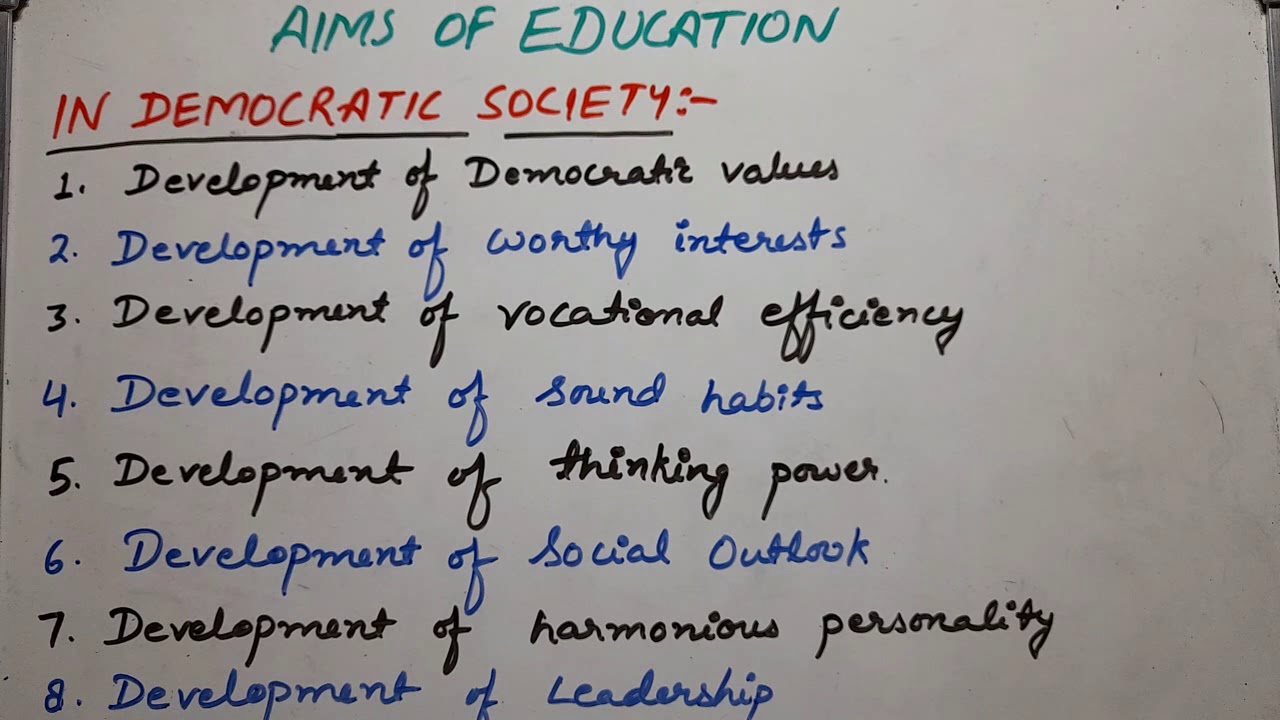 AIMS OF EDUCATION
IN DEMOCRATIC SOCIETY:-
1. Development of Democratic values
2. Development of worthy interests
3. Development of vocational efficiency
4. Development of sound habits
5. Development of thinking power.
6. Development of Social Outlook
7. Development of harmonious personality
8. Development of Leadership